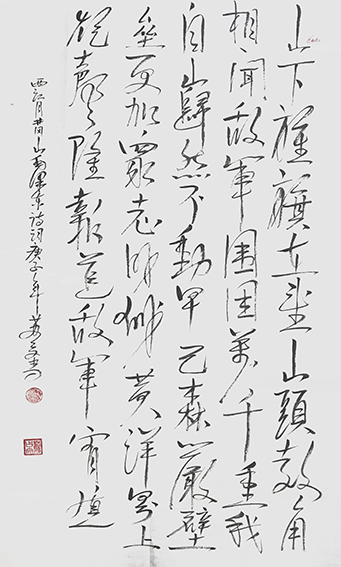 山下旌旗在望山頭鼓角
相聞敵軍圍困萬千重我
自巋然不動早已森嚴壁
壘更加眾志成城黃洋界上
炮聲隆報道敵軍宵遁
西江月井岡山毛澤東詩詞庚子年